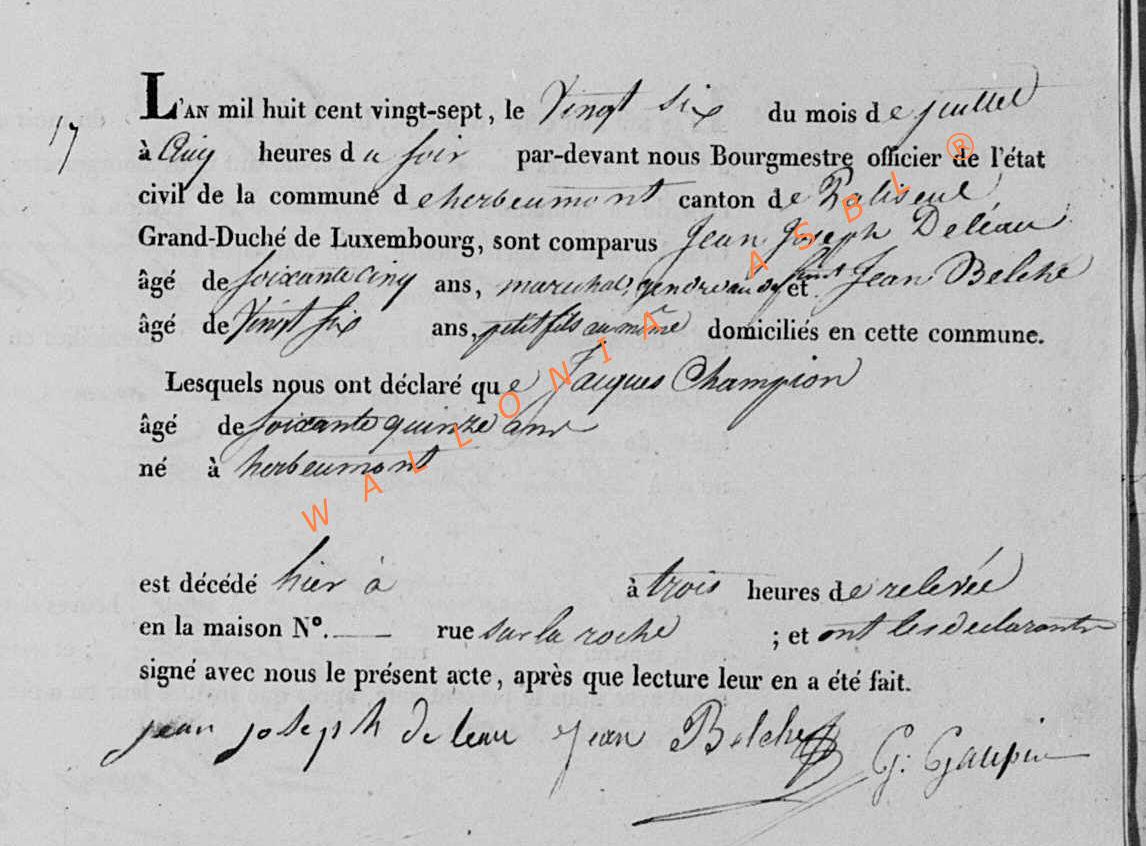 17
L'AN mil huit cent vingt-sept, le Vingt six du mois de juillet
à Cinq heures du soir par-devant nous Bourgmestre officier de l'état
civil de la commune de herbeumont canton de Paliseul
Grand-Duché de Luxembourg, sont comparus Jean Joseph Deléau
âgé de soixante cinq ans, marechal, gendre au défunt et Jean Belche
âgé de Vingt six ans, petit fils au même domiciliés en cette commune.
Lesquels nous ont déclaré que Jacques Champion
âgé de soixante quinze ans
né à herbeumont
est décédé hier à à trois heures de relevée
en la maison N°. — rue sur la roche ; et ont les declarants
signé avec nous le présent acte, après que lecture leur en a été fait.
jean joseph de leau jean Belche G: Gaupin
WALLONIA ASBL ®